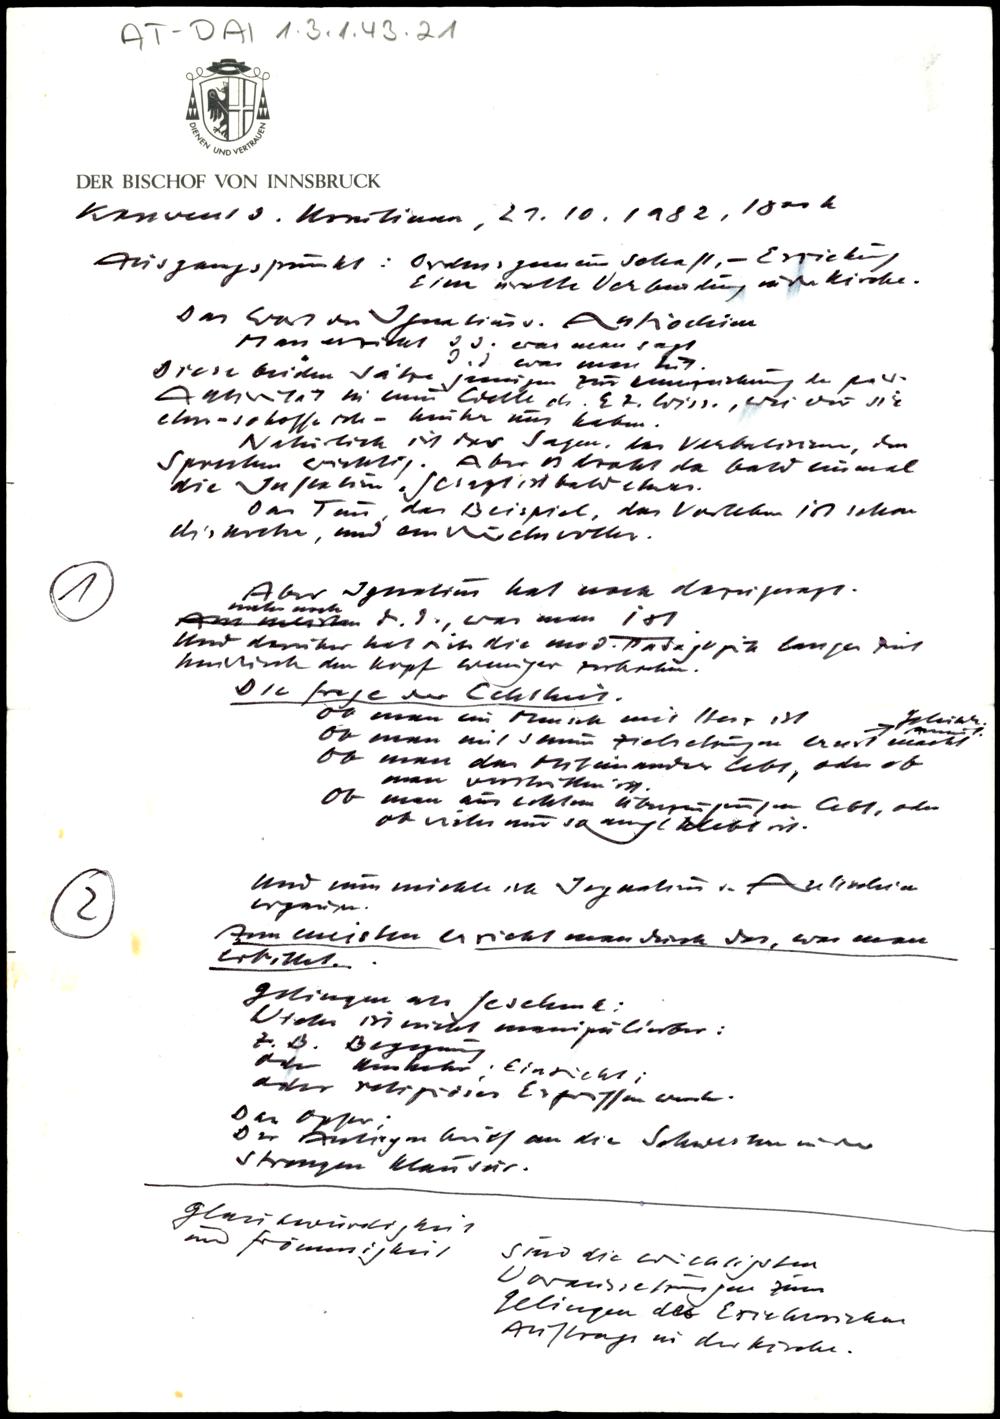 AT-DAI 1.3.1.43.21
DIENEN UND VERTRAUEN
DER BISCHOF VON INNSBRUCK
Konvent d. Ursulinen, 21.10.1982, 18 00 h
Ausgangspunkt: Ordensgemeinschaft, – Erziehung
Eine uralte Verbindung in der Kirche.
Das Wort des Ignatius v. Antiochien
Man erzieht d. d. was man sagt
d. d. was man tut.
Diese beiden Sätze zur der päd.
Aktivität in d. Erz. Wiss., wie wir sie
haben.
Natürlich ist das Sagen, das Verbalisieren, das
Sprechen wichtig. Aber es droht da bald einmal
die Inflation. Gesagt ist bald etwas.
Das Tun, das Beispiel, das Vorleben ist schon
und
1
Aber Ignatius hat noch dazugesagt.
mehr noch
Am meisten d. d., was man ist
Und darüber hat sich die mod. Pädagogik lange Zeit
den Kopf weniger zerbrochen.
Die Frage der Echtheit.
Ob man ein Mensch mit Herz ist
Ob man mit seinen Zielsetzungen ernst macht
Ob man das Miteinander lebt, oder ob
man zerstritten ist.
Ob man aus echten Überzeugungen lebt, oder
ob vieles nur so angeklebt ist.
2
Und nun möchte ich Ignatius v. Antiochien
ergänzen.
Am meisten erzieht man durch das, was man
erbittet.
Gelingen als Geschenk:
Vieles ist nicht manipulierbar:
z. B. Begegnung
oder Umkehr, Einsicht;
oder religiöses Ergriffen werden.
Das Opfer;
Der an die Schwestern in der
strengen Klausur.
Glaubwürdigkeit
und Frömmigkeit
sind die wichtigsten
Voraussetzungen zum
Gelingen des Erzieherischen
Auftrags in der Kirche.